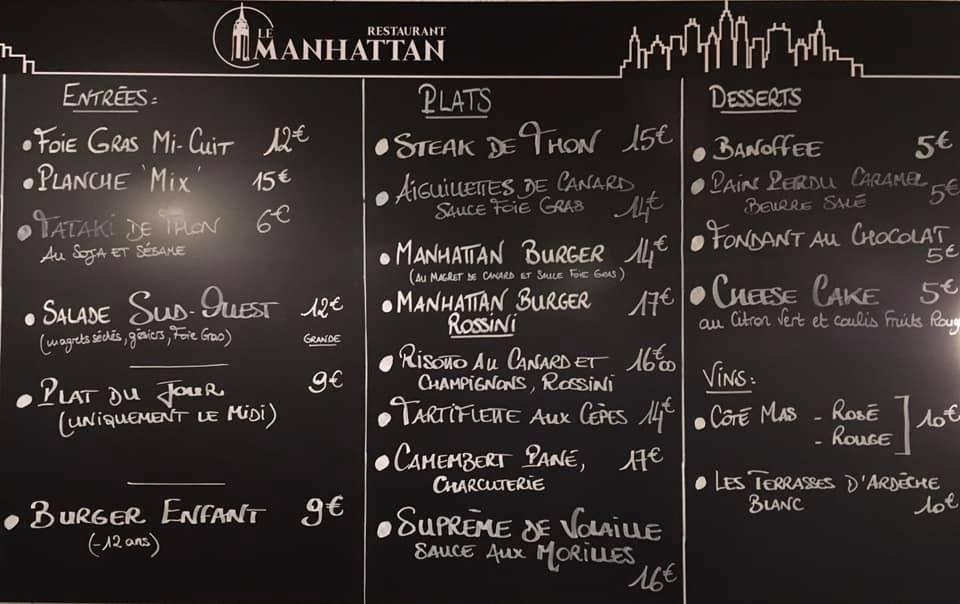 RESTAURANT
LE MANHATTAN
ENTRÉES:
• FOIE GRAS MI-CUIT 12€
• PLANCHE 'MIX' 15€
• TATAKI DE THON 6€
AU SOJA ET SÉSAME
• SALADE SUD-OUEST 12€
(magrets séchés, gésiers, Foie Gras) GRANDE
• PLAT DU JOUR 9€
(UNIQUEMENT LE MIDI)
• BURGER ENFANT 9€
(-12 ans)
PLATS
• STEAK DE THON 15€
• AIGUILLETTES DE CANARD
SAUCE FOIE GRAS 14€
• MANHATTAN BURGER 14€
(AU MAGRET DE CANARD ET SAUCE FOIE GRAS)
• MANHATTAN BURGER 17€
ROSSINI
• RISOTTO AU CANARD ET 16€00
CHAMPIGNONS, ROSSINI
• TARTIFLETTE AUX CÈPES 14€
• CAMEMBERT PANÉ, 17€
CHARCUTERIE
• SUPRÊME DE VOLAILLE
SAUCE AUX MORILLES
16€
DESSERTS
• BANOFFEE 5€
• PAIN PERDU CARAMEL
BEURRE SALÉ 5€
• FONDANT AU CHOCOLAT
5€
• CHEESE CAKE 5€
au Citron Vert et coulis Fruits Roug
VINS:
• CÔTÉ MAS - ROSÉ
- ROUGE 10€
• LES TERRASSES D'ARDÈCHE
BLANC 10€